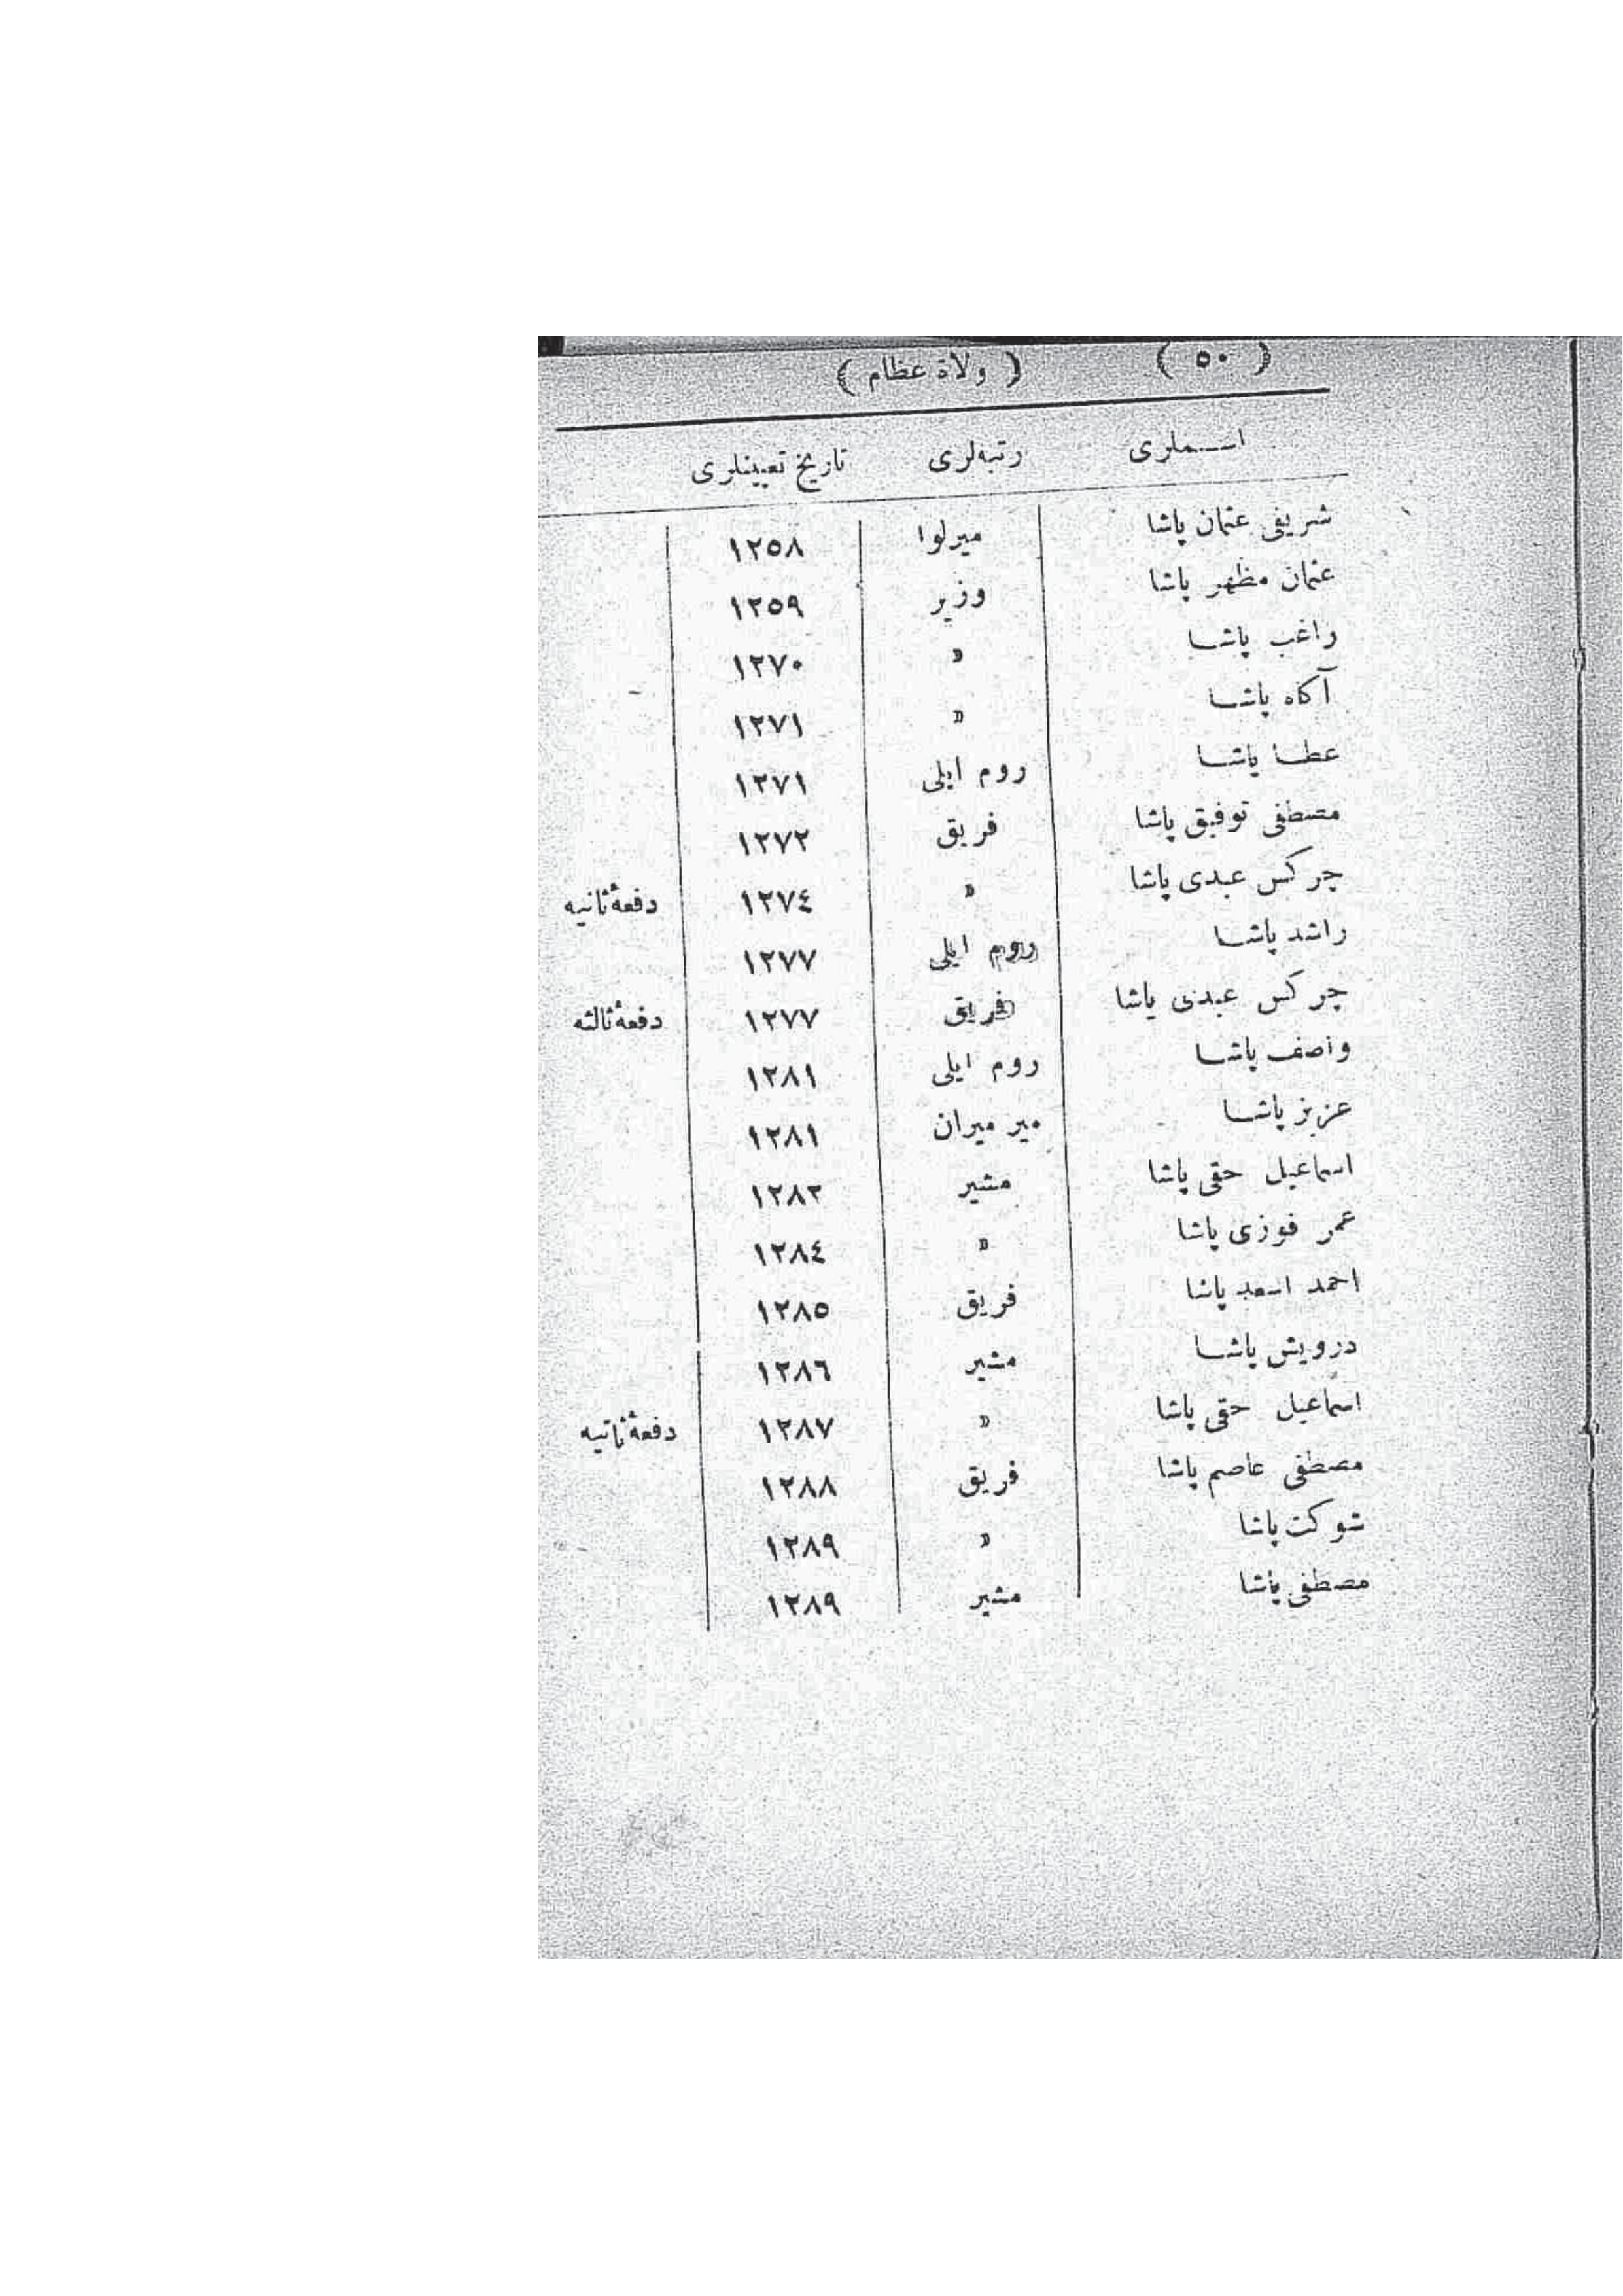 ( ٥٠ ) ( ولاة عظام )
اسملرى رتبه‌لرى تاريخ تعيينلرى
شريفى عثمان پاشا ميرلوا ١٢٥٨
عثمان مظهر پاشا وزير ١٢٥٩
راغب پاشا » ١٢٧٠
آكاه پاشا » ١٢٧١
عطا پاشا روم ايلى ١٢٧١
مصطفى توفيق پاشا فريق ١٢٧٢
چركس عبدى پاشا » ١٢٧٤ دفعهٔ ثانيه
راشد پاشا روم ايلى ١٢٧٧
چركس عبدى پاشا فريق ١٢٧٧ دفعهٔ ثالثه
واصف پاشا روم ايلى ١٢٨١
عزيز پاشا مير ميران ١٢٨١
اسماعيل حقى پاشا مشير ١٢٨٢
عمر فوزى پاشا » ١٢٨٤
احمد اسعد پاشا فريق ١٢٨٥
درويش پاشا مشير ١٢٨٦
اسماعيل حقى پاشا » ١٢٨٧ دفعهٔ ثانيه
مصطفى عاصم پاشا فريق ١٢٨٨
شوكت پاشا » ١٢٨٩
مصطفى پاشا مشير ١٢٨٩